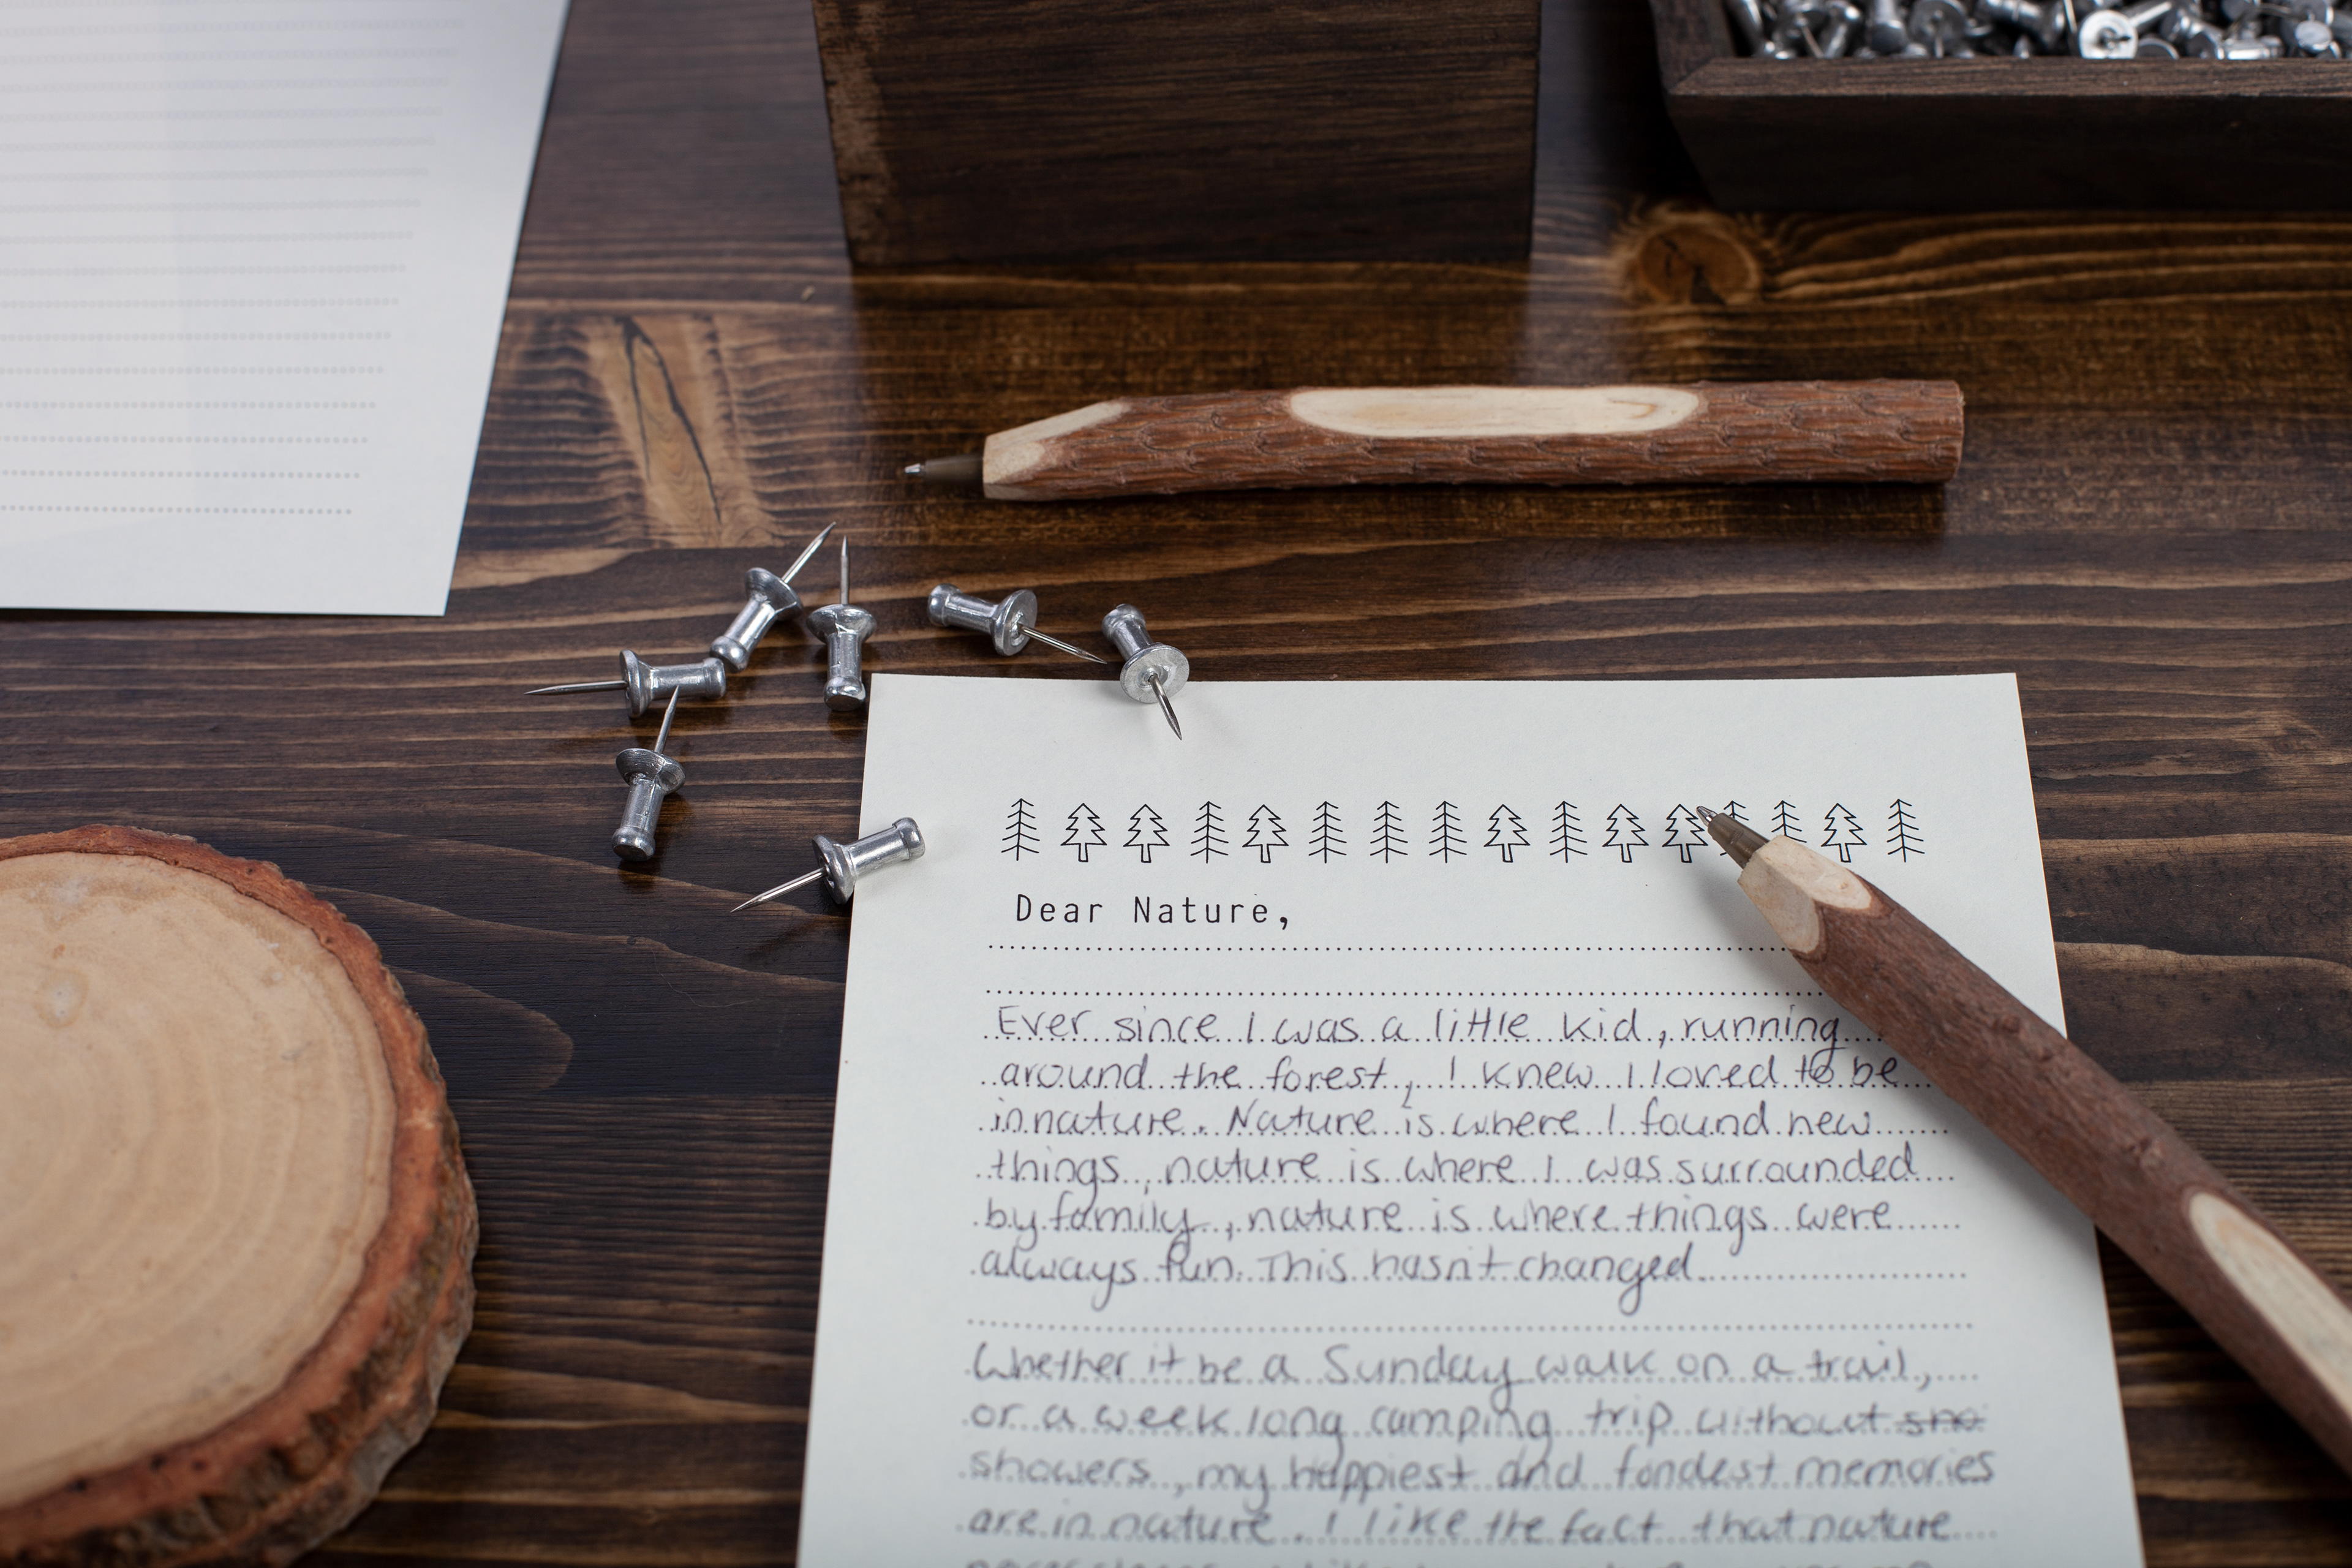 Dear Nature,
Ever since I was a little kid, running
around the forest, I knew I loved to be
in nature. Nature is where I found new
things, nature is where I was surrounded
by family, nature is where things were
always fun. This hasn't changed.
Whether it be a Sunday walk on a trail,
or a week long camping trip without sho
showers, my happiest and fondest memories
are in nature. I like the fact that nature